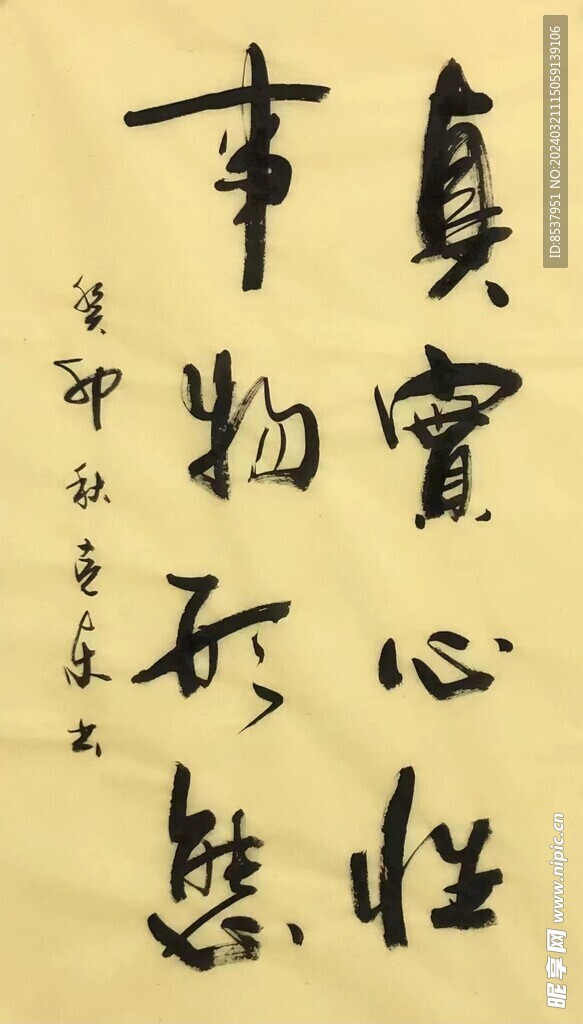 真實心性
事物形態
癸卯秋克東书
ID:8537951 NO:20240321115059139106
昵享网 www.nipic.cn